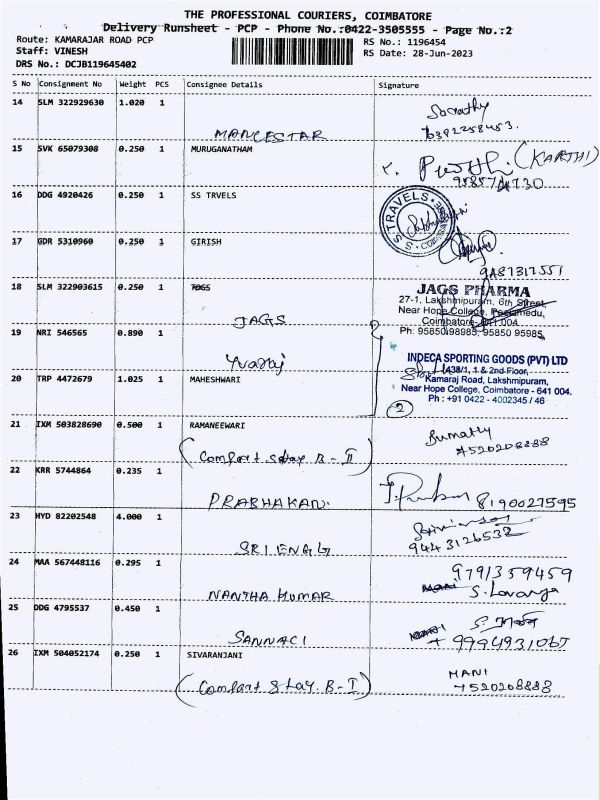 THE PROFESSIONAL COURIERS, COIMBATORE
Delivery Runsheet - PCP - Phone No.:0422-3505555 - Page No.:2
Route: KAMARAJAR ROAD PCP
Staff: VINESH
DRS No.: DCJB119645402
RS No.: 1196454
RS Date: 28-Jun-2023
S No Consignment No Weight PCS Consignee Details Signature
14 SLM 322929630 1.020 1
MANCESTAR
15 SVK 65079308 0.250 1 MURUGANATHAM
(KARTHI)
16 DDG 4920426 0.250 1 SS TRVELS
S S TRAVELS COIMBATORE
17 GDR 5310960 0.250 1 GIRISH
9487317551
18 SLM 322903615 0.250 1 TOGS
JAGS
JAGS PHARMA
27-1, Lakshmipuram, 6th Street,
Near Hope College, Peelamedu,
Coimbatore - 641 004.
Ph: 95850 98985, 95850 95985
19 NRI 546565 0.890 1
Yuvaraj
20 TRP 4472679 1.025 1 MAHESHWARI
INDECA SPORTING GOODS (PVT) LTD
1438/1, 1 & 2nd Floor,
Kamaraj Road, Lakshmipuram,
Near Hope College, Coimbatore - 641 004.
Ph : +91 0422 - 4002345 / 46
2
21 IXM 503828690 0.500 1 RAMANEEWARI
(Comfort Stay B - II)
7520208888
22 KRR 5744864 0.235 1
PRABHAKAN.
8190027595
23 HYD 82202548 4.000 1
SRI ENGG
9443126532
24 MAA 567448116 0.295 1
NANTHA KUMAR
9791359459
S. Lavanya
25 DDG 4795537 0.450 1
SANNACI
26 IXM 504052174 0.250 1 SIVARANJANI
(Comfort Stay. B - I)
MANI
7520208888